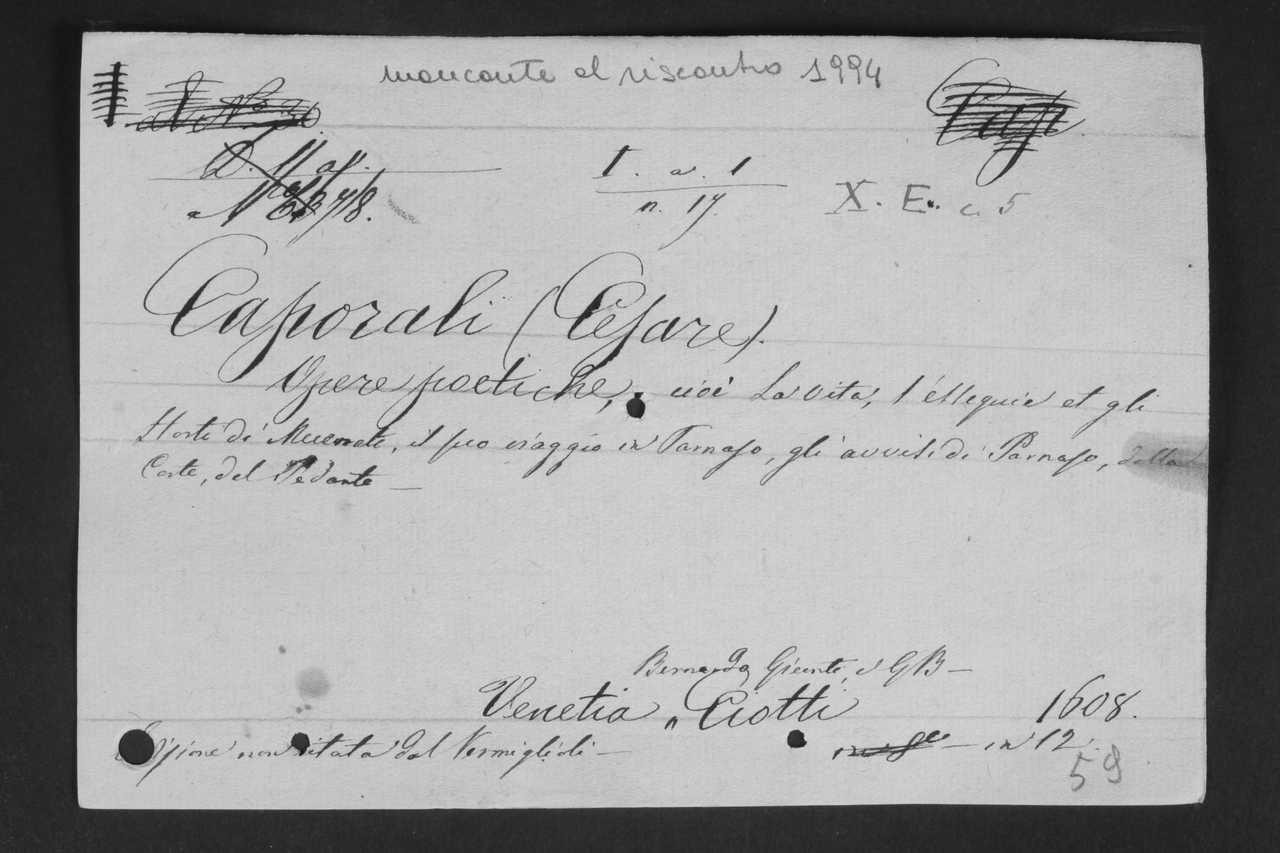 mancante al riscontro 1994
I. a. 1
n. 17
X. E. c. 5
Caporali (Cesare).
Opere poetiche, cioè La vita, l'essequie et gli
Horti di Mecenate, il suo viaggio in Parnaso, gli avvisi di Parnaso, della
Corte, del Pedante —
Bernardo Giunti, e GB —
Venetia „ Ciotti 1608.
Edizione non citata dal Vermiglioli — in 12.
59